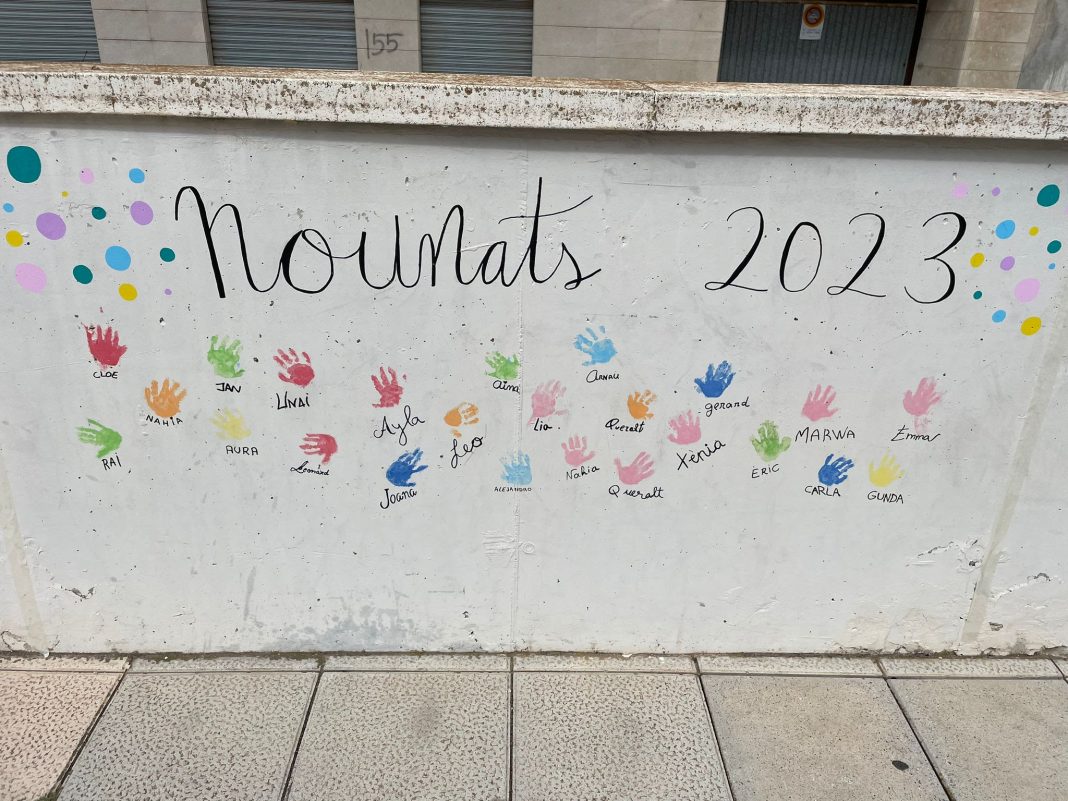 155
Nounats 2023
CLOE
JAN
UNAI
Ayla
Aina
ARNAU
gerard
NAHIA
AURA
Leo
Lia
Queralt
Xènia
MARWA
Emma
RAI
Leonard
Joana
ALEJANDRO
Nahia
Queralt
ERIC
CARLA
GUNDA